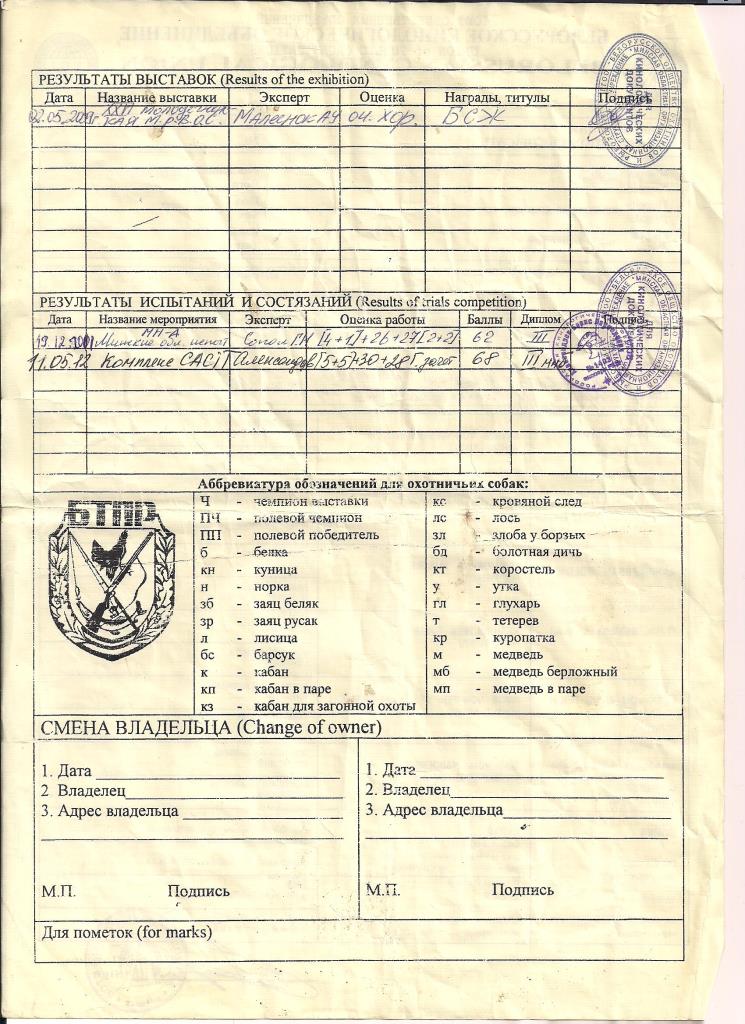 РЕЗУЛЬТАТЫ ВЫСТАВОК (Results of the exhibition)
Дата Название выставки Эксперт Оценка Награды, титулы Подпись
XXII
оч. хор. БСЖ
РЕЗУЛЬТАТЫ ИСПЫТАНИЙ И СОСТЯЗАНИЙ (Results of trials competition)
Дата Название мероприятия Эксперт Оценка работы Баллы Диплом Подпись
19.12. обл. [4+1]+26+27[2+2] 62 III
11.05.12 Комплекс CACiT Александов [5+5]+30+28 68 III
Аббревиатура обозначений для охотничьих собак:
БТПР
Ч - чемпион выставки кс - кровяной след
ПЧ - полевой чемпион лс - лось
ПП - полевой победитель зл - злоба у борзых
б - белка бд - болотная дичь
кн - куница кт - коростель
н - норка у - утка
зб - заяц беляк гл - глухарь
зр - заяц русак т - тетерев
л - лисица кр - куропатка
бс - барсук м - медведь
к - кабан мб - медведь берложный
кп - кабан в паре мп - медведь в паре
кз - кабан для загонной охоты
СМЕНА ВЛАДЕЛЬЦА (Change of owner)
1. Дата 1. Дата
2 Владелец 2. Владелец
3. Адрес владельца 3. Адрес владельца
М.П. Подпись М.П. Подпись
Для пометок (for marks)